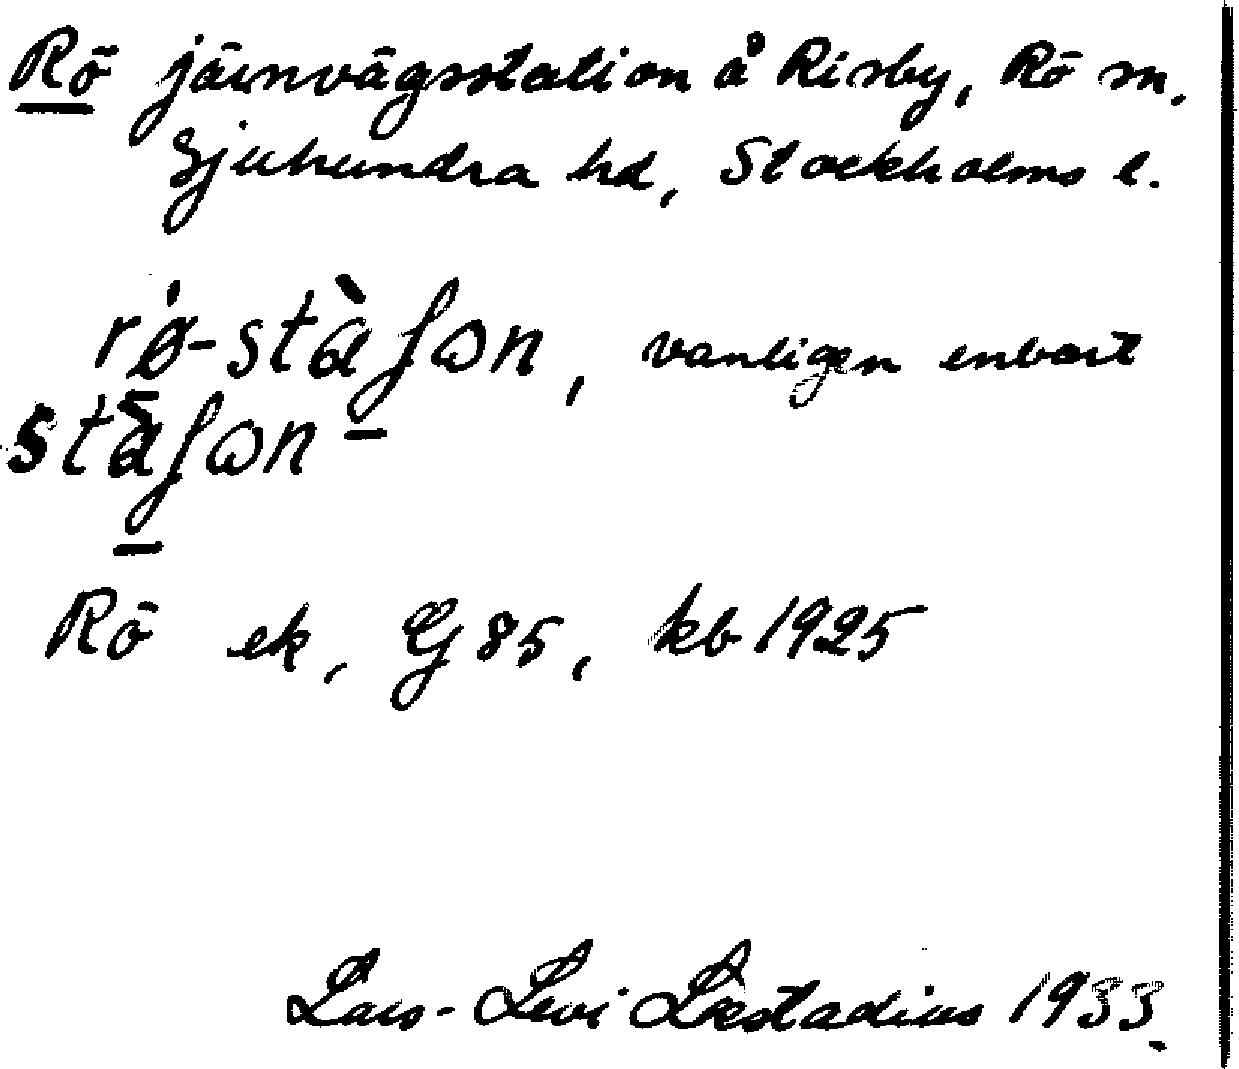 Rö järnvägsstation å Risby, Rö sn.
Sjuhundra hd, Stockholms l.
rǿ-stàʃωn, vanligen enbart
stàʃωn
Rö ek, G 85, kb 1925
Lars-Levi Læstadius 1933